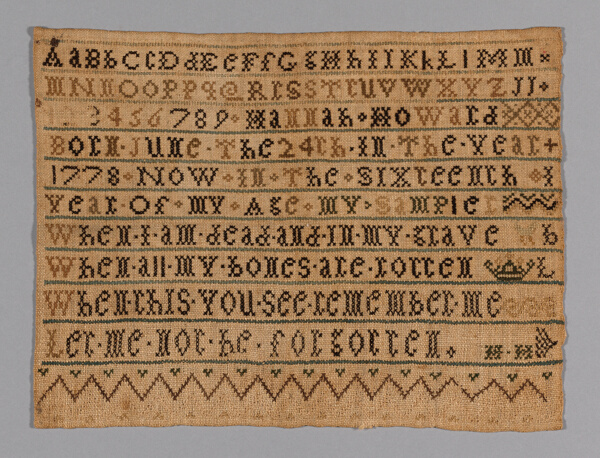 A a B b C c D d E e F f G g H h I i K k L l M m
m N n O o P p q Q R r S s T t U V W X Y Z
2 3 4 5 6 7 8 9 Hannah HoWard
Born June The 24th in The Year
1778 NoW in The Sixteenth
Year Of MY Age MY SaMPle
When I am dead and in my grave
When all MY bones are rotten L
When this You see remember me
Let me not be forgotten. H H